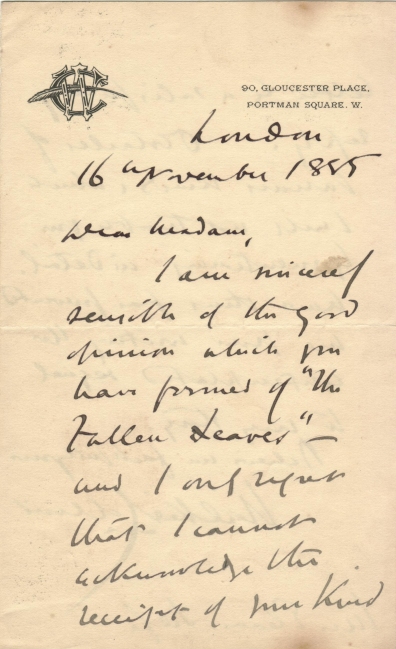 90, GLOUCESTER PLACE,
PORTMAN SQUARE. W.
London
16 November 1885
Dear Madam,
I am sincerely
sensible of the good
opinion which you
have formed of "The
Fallen Leaves" —
and I only regret
that I cannot
acknowledge the
receipt of your kind